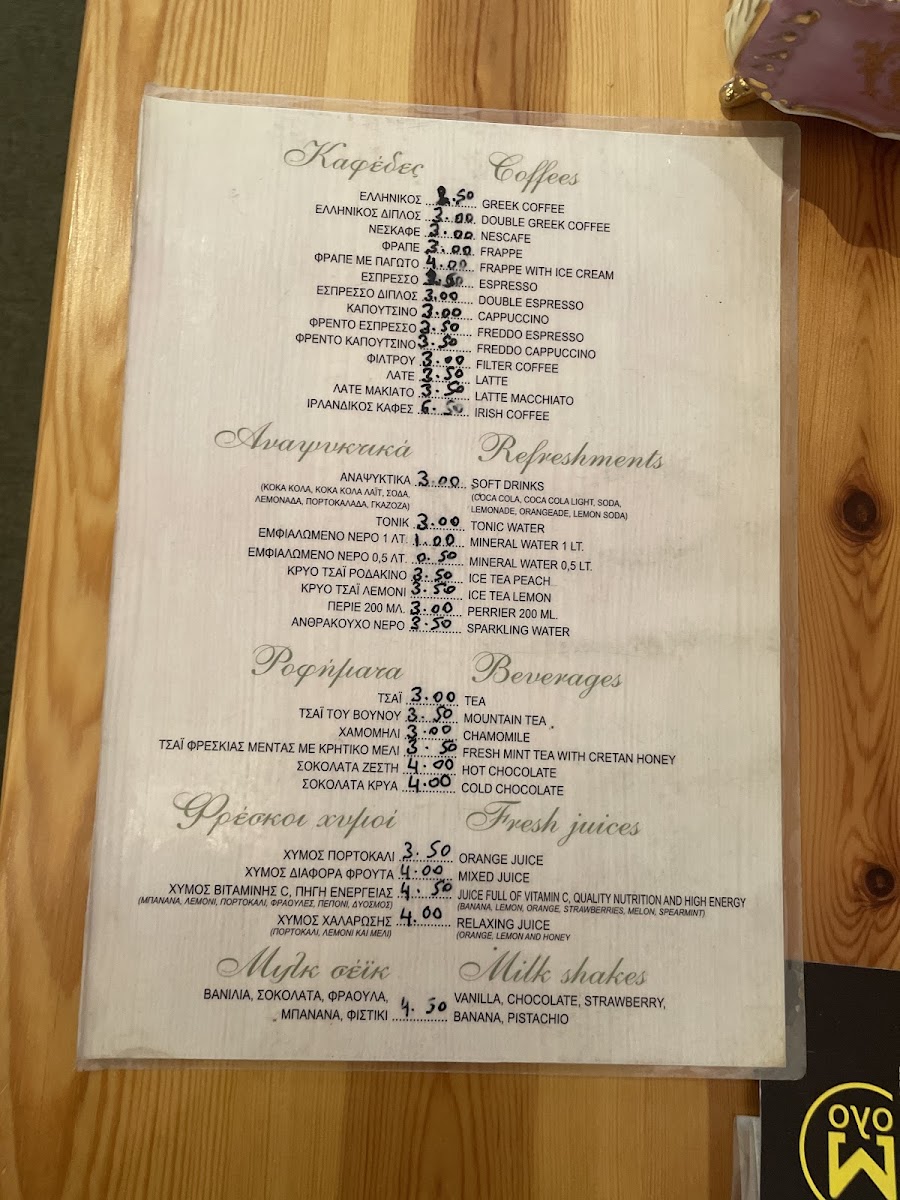 Καφέδες Coffees
ΕΛΛΗΝΙΚΟΣ 2.50 GREEK COFFEE
ΕΛΛΗΝΙΚΟΣ ΔΙΠΛΟΣ 3.00 DOUBLE GREEK COFFEE
ΝΕΣΚΑΦΕ 3.00 NESCAFE
ΦΡΑΠΕ 3.00 FRAPPE
ΦΡΑΠΕ ΜΕ ΠΑΓΩΤΟ 4.00 FRAPPE WITH ICE CREAM
ΕΣΠΡΕΣΣΟ 2.50 ESPRESSO
ΕΣΠΡΕΣΣΟ ΔΙΠΛΟΣ 3.00 DOUBLE ESPRESSO
ΚΑΠΟΥΤΣΙΝΟ 3.00 CAPPUCCINO
ΦΡΕΝΤΟ ΕΣΠΡΕΣΣΟ 3.50 FREDDO ESPRESSO
ΦΡΕΝΤΟ ΚΑΠΟΥΤΣΙΝΟ 3.50 FREDDO CAPPUCCINO
ΦΙΛΤΡΟΥ 3.00 FILTER COFFEE
ΛΑΤΕ 3.50 LATTE
ΛΑΤΕ ΜΑΚΙΑΤΟ 3.50 LATTE MACCHIATO
ΙΡΛΑΝΔΙΚΟΣ ΚΑΦΕΣ 6.50 IRISH COFFEE
Αναψυκτικά Refreshments
ΑΝΑΨΥΚΤΙΚΑ 3.00 SOFT DRINKS
(ΚΟΚΑ ΚΟΛΑ, ΚΟΚΑ ΚΟΛΑ ΛΑΪΤ, ΣΟΔΑ, (COCA COLA, COCA COLA LIGHT, SODA,
ΛΕΜΟΝΑΔΑ, ΠΟΡΤΟΚΑΛΑΔΑ, ΓΚΑΖΟΖΑ) LEMONADE, ORANGEADE, LEMON SODA)
ΤΟΝΙΚ 3.00 TONIC WATER
ΕΜΦΙΑΛΩΜΕΝΟ ΝΕΡΟ 1 ΛΤ. 1.00 MINERAL WATER 1 LT.
ΕΜΦΙΑΛΩΜΕΝΟ ΝΕΡΟ 0,5 ΛΤ. 0.50 MINERAL WATER 0,5 LT.
ΚΡΥΟ ΤΣΑΪ ΡΟΔΑΚΙΝΟ 3.50 ICE TEA PEACH
ΚΡΥΟ ΤΣΑΪ ΛΕΜΟΝΙ 3.50 ICE TEA LEMON
ΠΕΡΙΕ 200 ΜΛ. 3.00 PERRIER 200 ML.
ΑΝΘΡΑΚΟΥΧΟ ΝΕΡΟ 3.50 SPARKLING WATER
Ροφήματα Beverages
ΤΣΑΪ 3.00 TEA
ΤΣΑΪ ΤΟΥ ΒΟΥΝΟΥ 3.50 MOUNTAIN TEA
ΧΑΜΟΜΗΛΙ 3.00 CHAMOMILE
ΤΣΑΪ ΦΡΕΣΚΙΑΣ ΜΕΝΤΑΣ ΜΕ ΚΡΗΤΙΚΟ ΜΕΛΙ 3.50 FRESH MINT TEA WITH CRETAN HONEY
ΣΟΚΟΛΑΤΑ ΖΕΣΤΗ 4.00 HOT CHOCOLATE
ΣΟΚΟΛΑΤΑ ΚΡΥΑ 4.00 COLD CHOCOLATE
Φρέσκοι χυμοί Fresh juices
ΧΥΜΟΣ ΠΟΡΤΟΚΑΛΙ 3.50 ORANGE JUICE
ΧΥΜΟΣ ΔΙΑΦΟΡΑ ΦΡΟΥΤΑ 4.00 MIXED JUICE
ΧΥΜΟΣ ΒΙΤΑΜΙΝΗΣ C, ΠΗΓΗ ΕΝΕΡΓΕΙΑΣ 4.50 JUICE FULL OF VITAMIN C, QUALITY NUTRITION AND HIGH ENERGY
(ΜΠΑΝΑΝΑ, ΛΕΜΟΝΙ, ΠΟΡΤΟΚΑΛΙ, ΦΡΑΟΥΛΕΣ, ΠΕΠΟΝΙ, ΔΥΟΣΜΟΣ) (BANANA, LEMON, ORANGE, STRAWBERRIES, MELON, SPEARMINT)
ΧΥΜΟΣ ΧΑΛΑΡΩΣΗΣ 4.00 RELAXING JUICE
(ΠΟΡΤΟΚΑΛΙ, ΛΕΜΟΝΙ ΚΑΙ ΜΕΛΙ) (ORANGE, LEMON AND HONEY
Μιλκ σέϊκ Milk shakes
ΒΑΝΙΛΙΑ, ΣΟΚΟΛΑΤΑ, ΦΡΑΟΥΛΑ, VANILLA, CHOCOLATE, STRAWBERRY,
ΜΠΑΝΑΝΑ, ΦΙΣΤΙΚΙ 4.50 BANANA, PISTACHIO